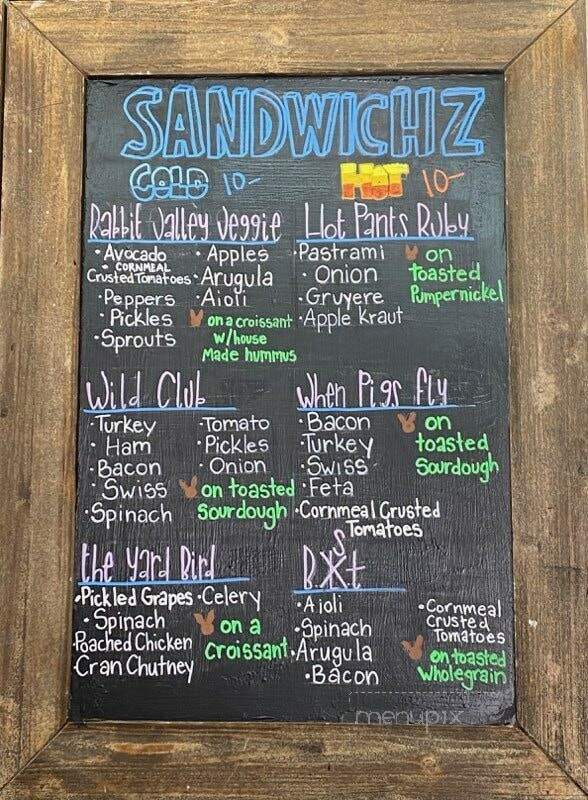 SANDWICHZ
COLD 10-
HOT 10-
Rabbit Valley Veggie
• Avocado
• CORNMEAL
Crusted Tomatoes
• Peppers
• Pickles
• Sprouts
• Apples
• Arugula
• Aioli
on a croissant
w/house
Made hummus
Hot Pants Ruby
Pastrami
• Onion
• Gruyere
• Apple kraut
on
toasted
Pumpernickel
Wild Club
• Turkey
• Ham
• Bacon
• Swiss
• Spinach
• Tomato
• Pickles
• Onion
on toasted
Sourdough
When Pigs fly
• Bacon
• Turkey
• Swiss
• Feta
• Cornmeal Crusted
Tomatoes
on
toasted
Sourdough
the Yard Bird
• Pickled Grapes
• Spinach
• Poached Chicken
• Cran Chutney
• Celery
on a
Croissant
• Aioli
• Spinach
• Arugula
• Bacon
• Cornmeal
Crusted
Tomatoes
on toasted
Wholegrain
menupix